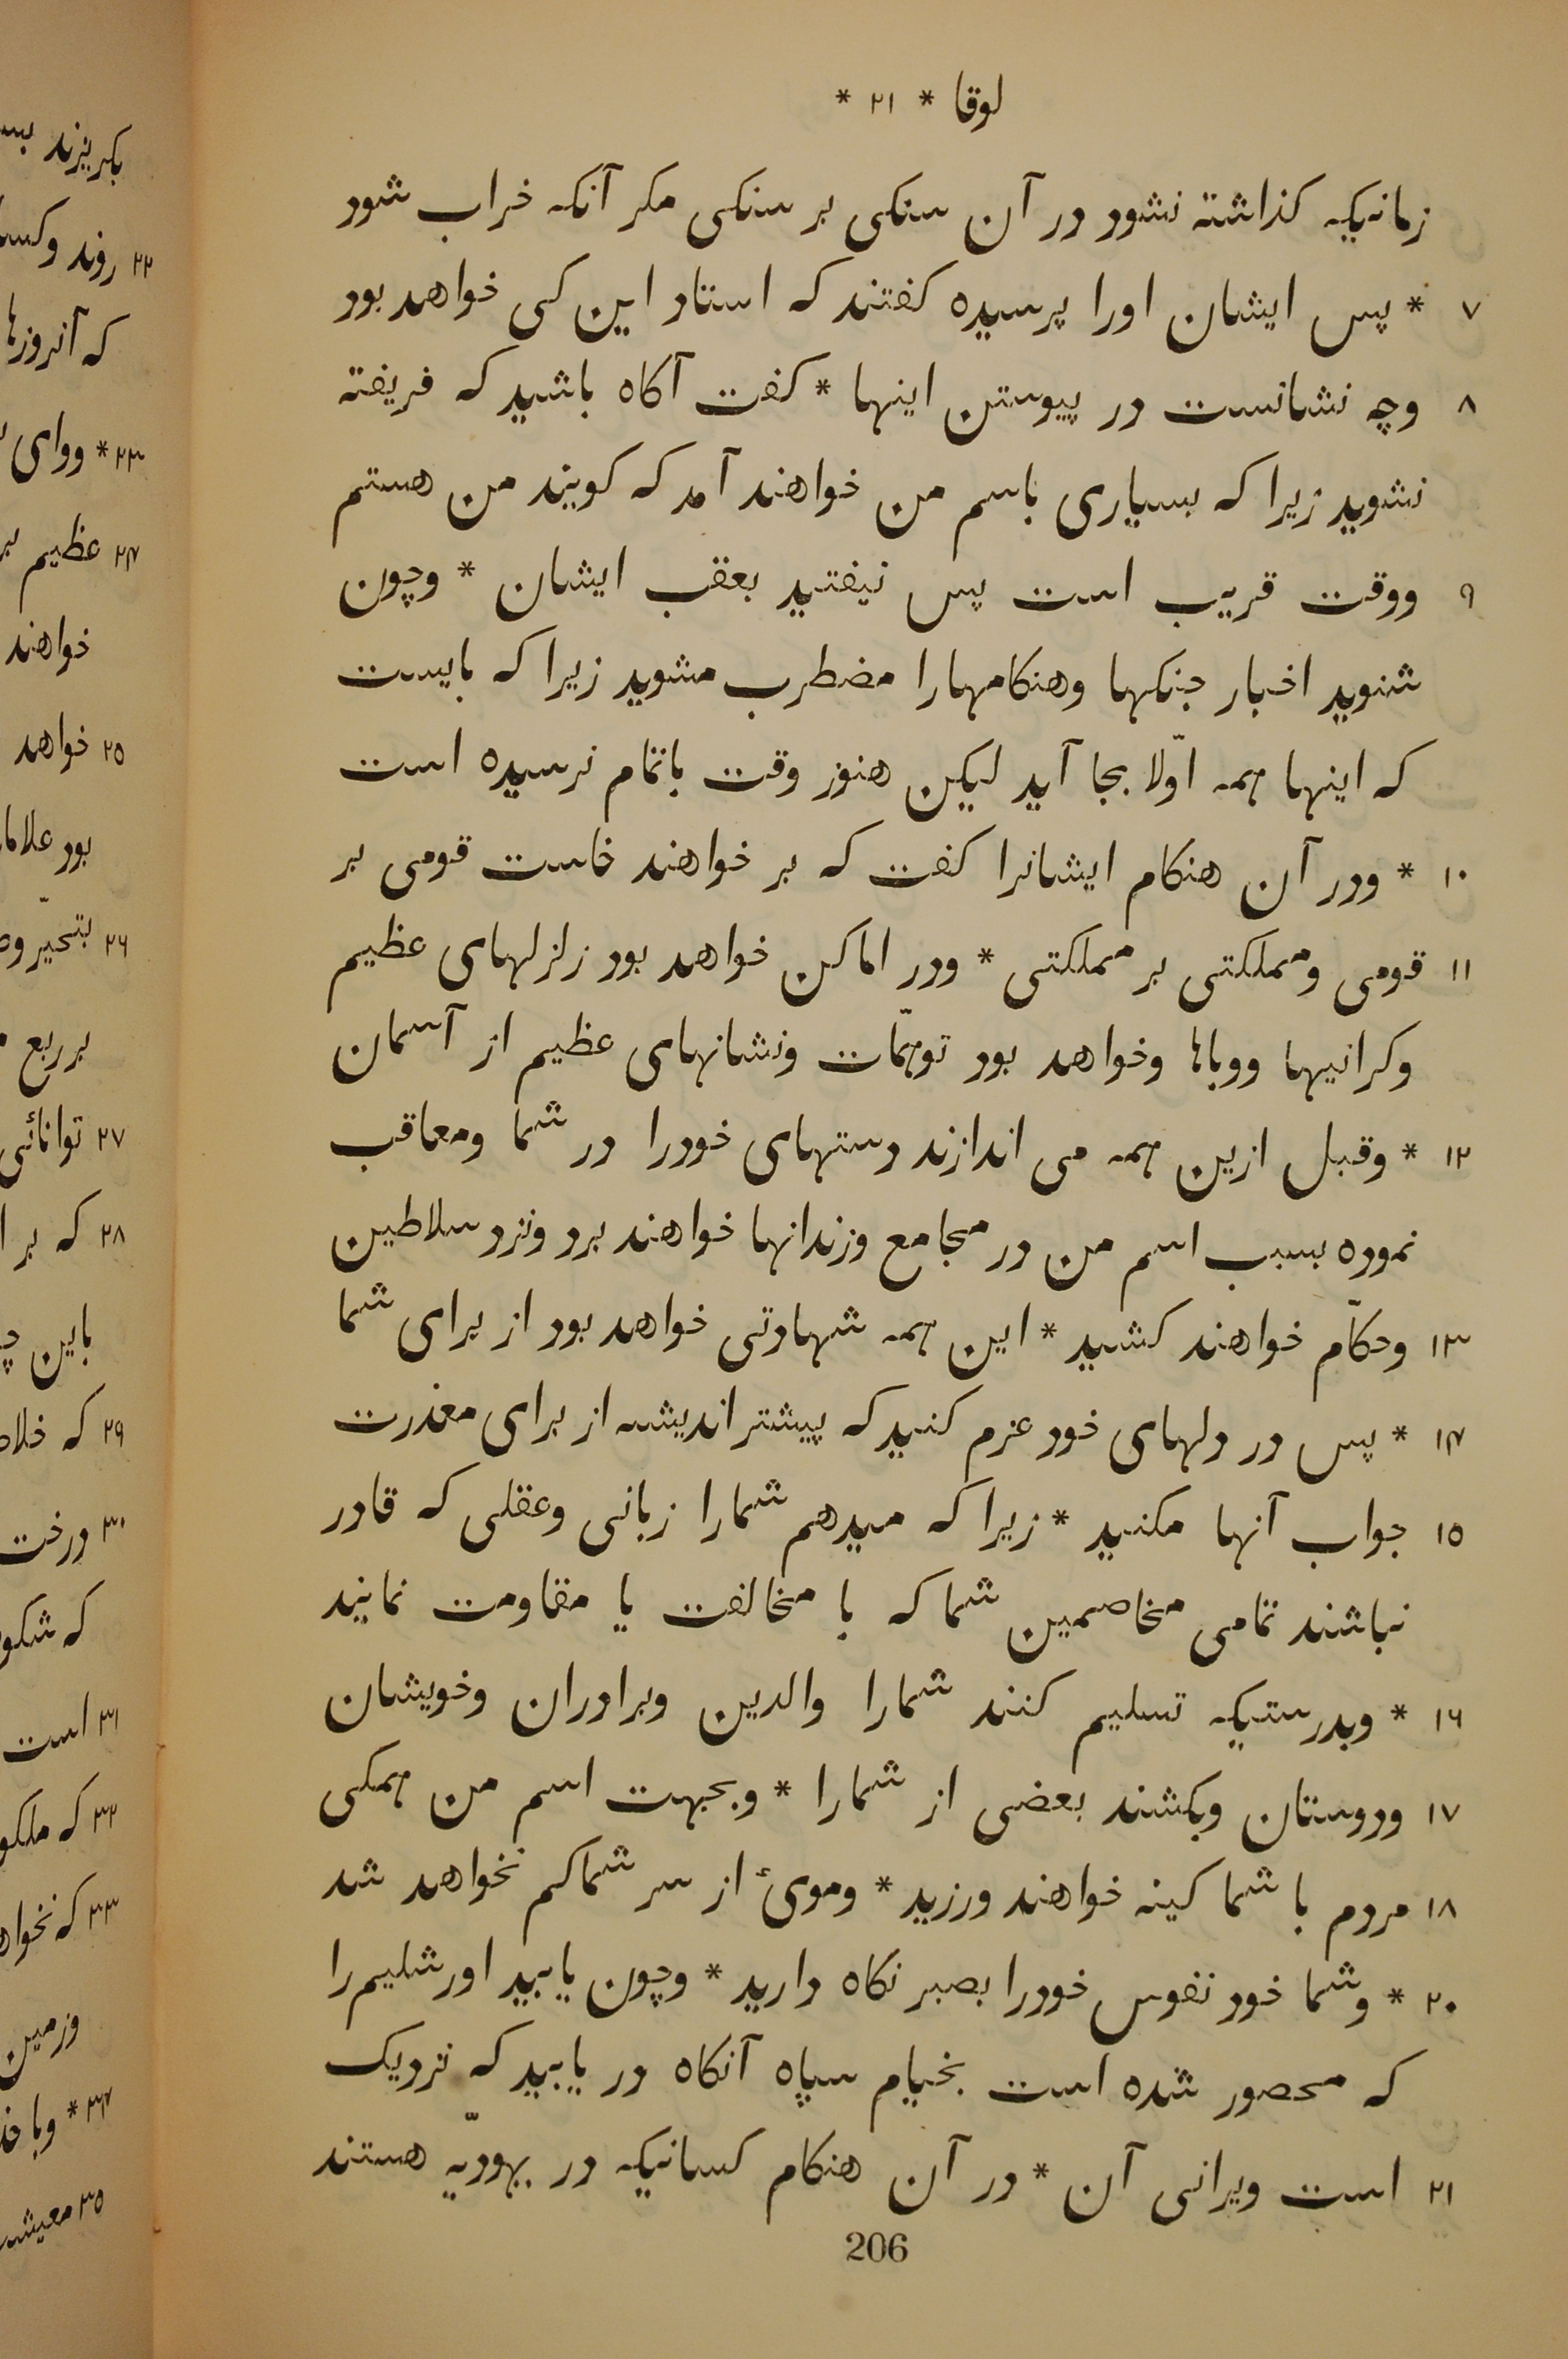 لوقا * ۲۱ *
زمانیکه کذاشته نشود در آن سنکی بر سنکی مکر آنکه خراب شود
۷ * پس ایشان اورا پرسیده کفتند که استاد این کی خواهد بود
۸ وچه نشانست در پیوستن اینها * کفت آکاه باشید که فریفته
نشوید زیرا که بسیاری باسم من خواهند آمد که کویند من هستم
۹ ووقت قریب است پس نیفتید بعقب ایشان * وچون
شنوید اخبار جنکها وهنکامهارا مضطرب مشوید زیرا که بایست
که اینها همه اوّلا بجا آید لیکن هنوز وقت باتمام نرسیده است
۱۰ * ودر آن هنکام ایشانرا کفت که بر خواهند خاست قومی بر
۱۱ قومی ومملکتی بر مملکتی * ودر اماکن خواهد بود زلزلهای عظیم
وکرانیها ووباها وخواهد بود توهّمات ونشانهای عظیم از آسمان
۱۲ * وقبل ازین همه می اندازند دستهای خودرا در شما ومعاقب
نموده بسبب اسم من در مجامع وزندانها خواهند برد ونزد سلاطین
۱۳ وحکّام خواهند کشید * این همه شهادتی خواهد بود از برای شما
۱۴ * پس در دلهای خود عزم کنید که پیشتر اندیشه از برای معذرت
۱۵ جواب آنها مکنید * زیرا که میدهم شمارا زبانی وعقلی که قادر
نباشند تمامی مخاصمین شما که با مخالفت یا مقاومت نمایند
۱۶ * وبدرستیکه تسلیم کنند شمارا والدین وبرادران وخویشان
۱۷ ودوستان وبکشند بعضی از شمارا * وبجهت اسم من همکی
۱۸ مردم با شما کینه خواهند ورزید * وموئ از سر شما کم نخواهد شد
۲۰ * وشما خود نفوس خودرا بصبر نکاه دارید * وچون یابید اورشلیم را
که محصور شده است بخیام سپاه آنکاه در یابید که نزدیک
۲۱ است ویرانی آن * در آن هنکام کسانیکه در یهودیّه هستند
206
بکریزند
۲۲ روند
که آنروزها
۲۳ * ووای
۲۴ عظیم
خواهند
۲۵ خواهد
بود
۲۶ بتحیّر
بر ربع
۲۷ توانائی
۲۸ که بر
باین
۲۹ که
۳۰ درخت
که
۳۱ است
۳۲ که
۳۳ که
وزمین
۳۴ * وبا
۳۵